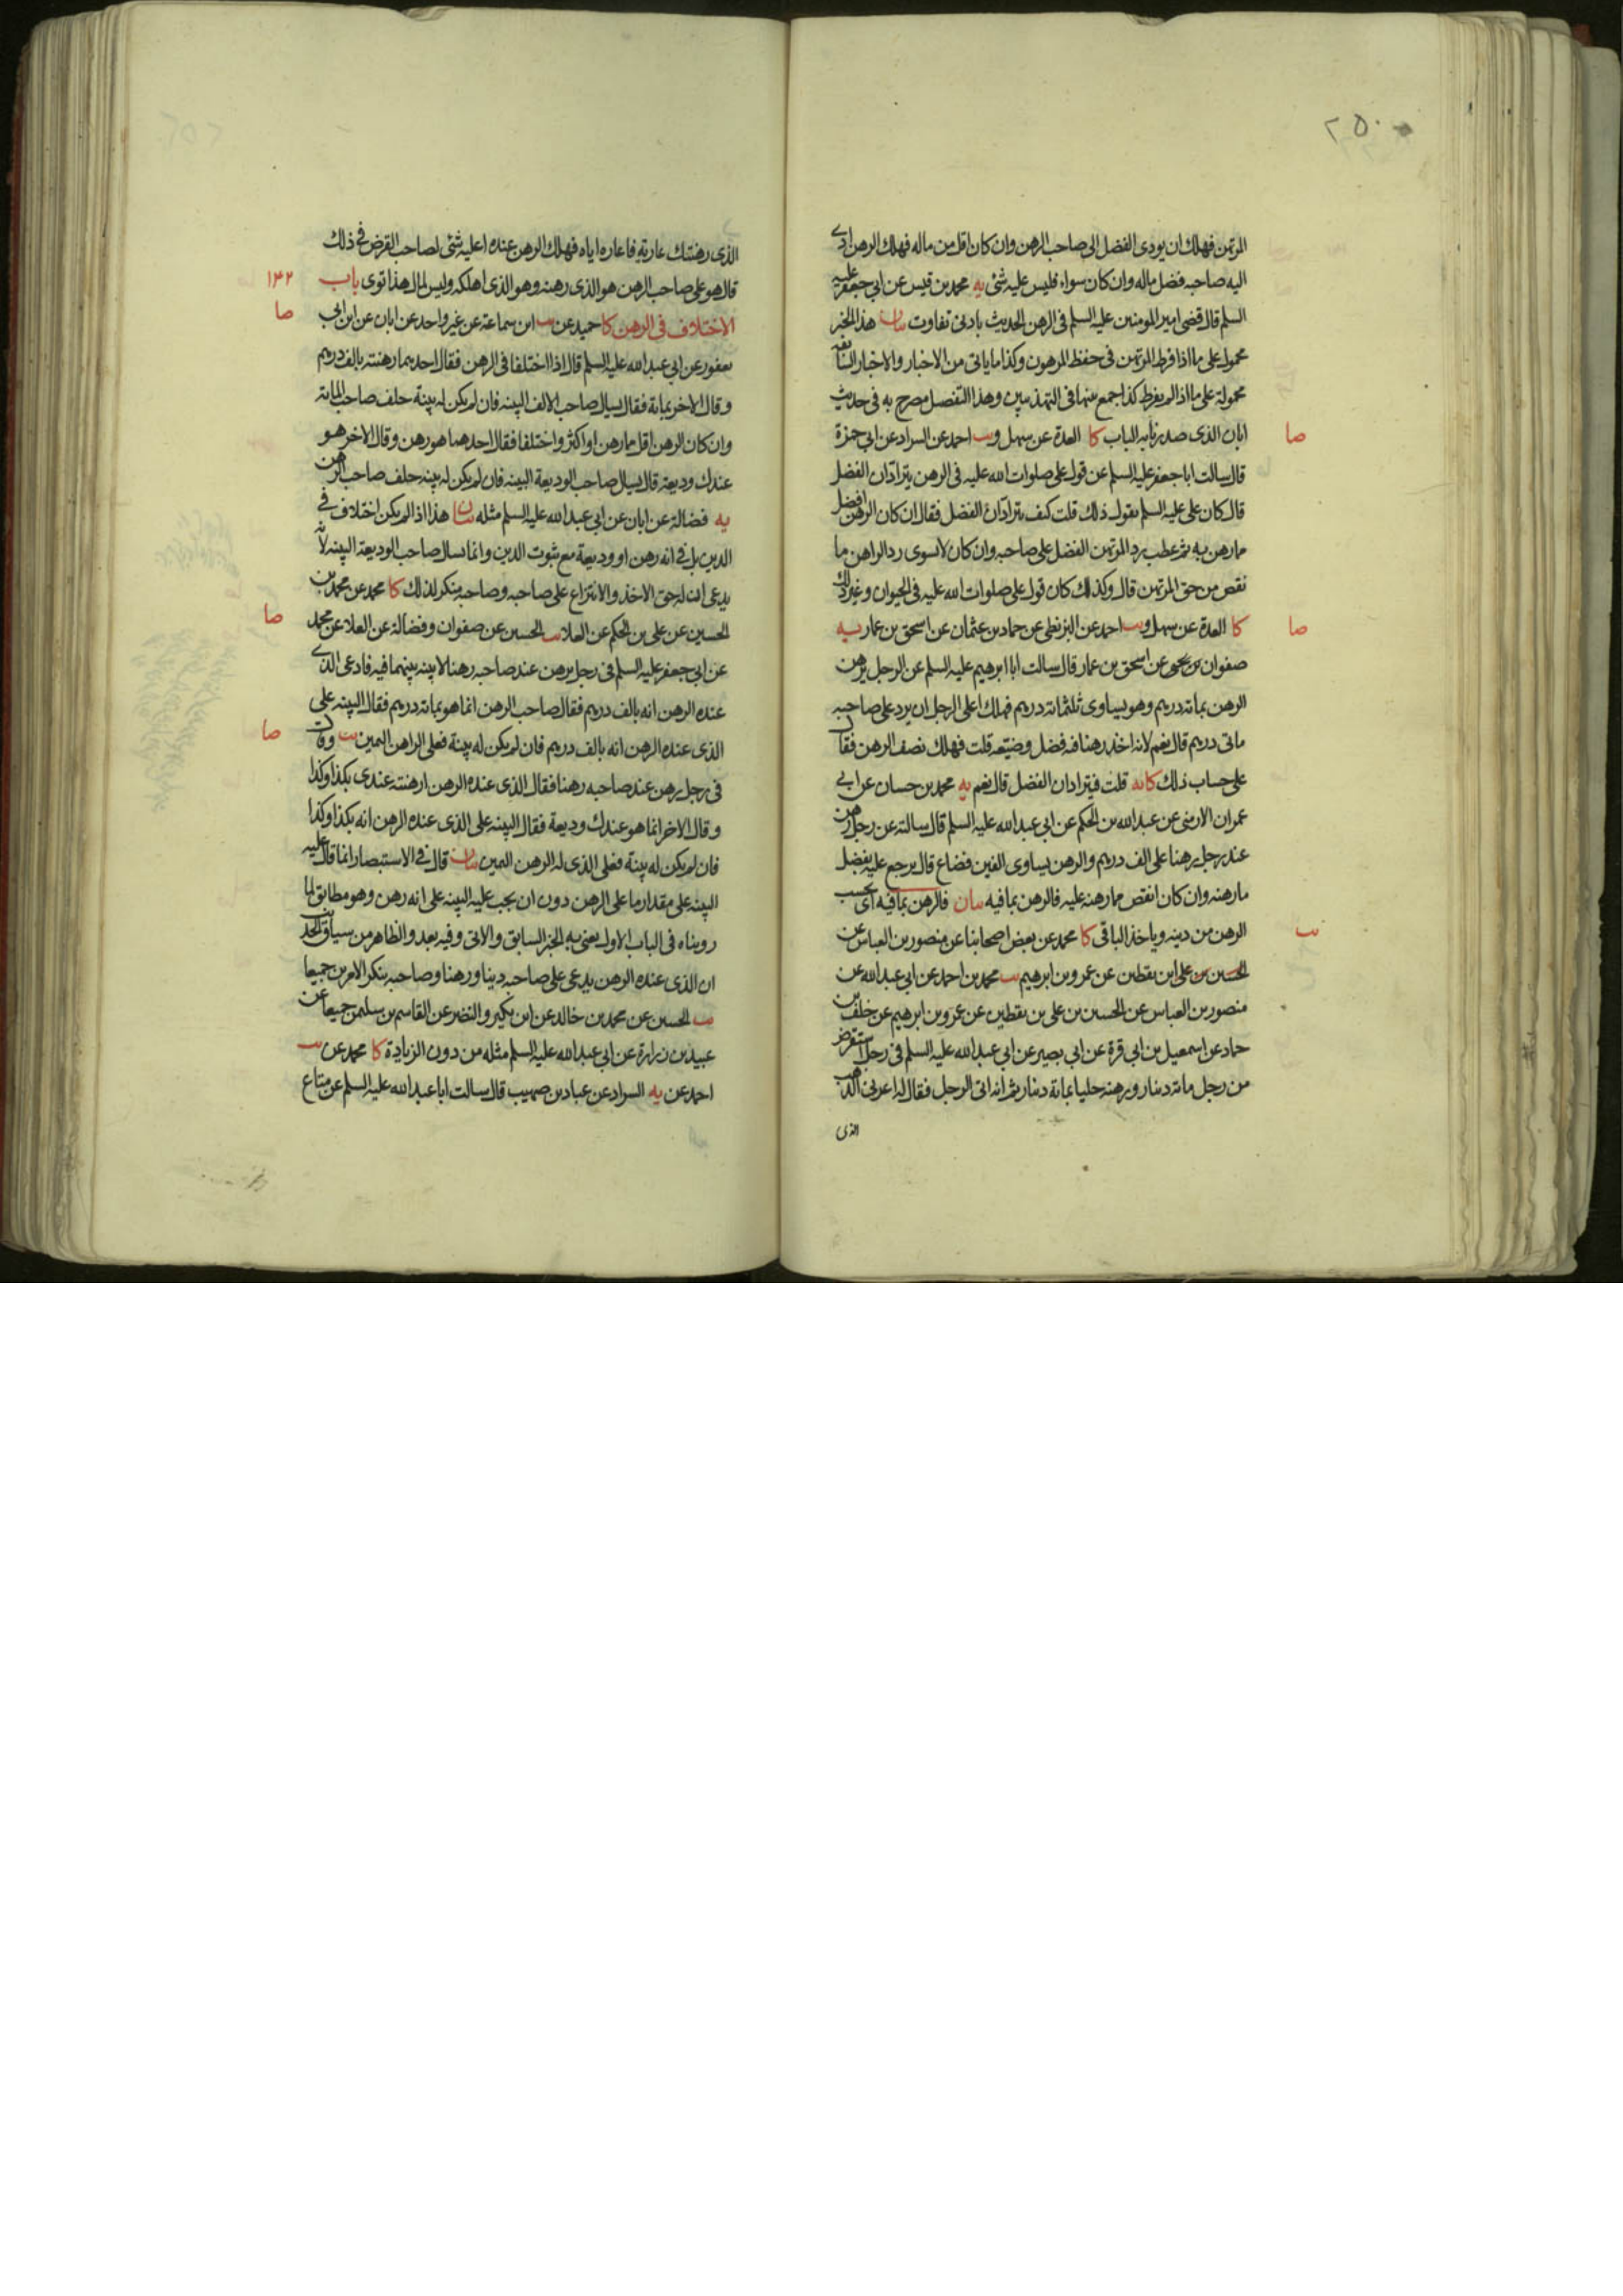 ٢٥٠
المرتهن فهلك ان يودى الفضل الى صاحب الرهن وان كان اقل من ماله فهلك الرهن ادى
اليه صاحبه فضل ماله وان كان سواء فليس عليه شئ يه محمد بن قيس عن ابي جعفر عليه
السلم قال قضى امير المومنين عليه السلم فى الرهن الحديث بادنى تفاوت بيان هذا الخبر
محمول على ما اذا فرط المرتهن فى حفظ المرهون وكذا ما ياتى من الاخبار والاخبار السابقه
محمولة على ما اذا لم يفرط كذا جمع بينها فى التهذيبين وهذا التفصيل مصرح به فى حديث
صا
ابان الذى صدرنا به الباب كا العدة عن سهل و يب احمد عن السراد عن ابي حمزة
قال سالت ابا جعفر عليه السلم عن قول على صلوات الله عليه فى الرهن يترادان الفضل
قال كان على عليه السلم يقول ذلك قلت كيف يترادّان الفضل فقال ان كان الرهن افضل
مما رهن به ثم عطب رد المرتهن الفضل على صاحبه وان كان لا يسوى رد الراهن ما
نقص من حق المرتهن قال وكذلك كان قول على صلوات الله عليه فى الحيوان وغير ذلك
صا
كا العدة عن سهل و يب احمد عن البزنطى عن حماد بن عثمان عن اسحق بن عمار يه
صفوان بن يحيى عن اسحق بن عمار قال سالت ابا ابرهيم عليه السلم عن الرجل يرهن
الرهن بمائة درهم وهو يساوى ثلثمائة درهم فهلك اعلى الرجل ان يرد على صاحبه
مائتى درهم قال نعم لانه اخذ رهنا فيه فضل وضيّعه قلت فهلك نصف الرهن فقال
على حساب ذلك كا يه قلت فيترادان الفضل قال نعم يه محمد بن حسان عن ابي
عمران الارمنى عن عبدالله بن الحكم عن ابي عبدالله عليه السلم قال سالته عن رجل رهن
عند رجل رهنا على الف درهم والرهن يساوى الفين فضاع قال يرجع عليه بفضل
ما رهنه وان كان انقص مما رهنه عليه فالرهن بما فيه بيان فالرهن بما فيه اى يحسب
يب
الرهن من دينه وياخذ الباقى كا محمد عن بعض اصحابنا عن منصور بن العباس عن
الحسين بن على ابن يقطين عن عمرو بن ابرهيم يب محمد بن احمد عن ابي عبدالله عن
منصور بن العباس عن الحسين بن على بن يقطين عن عمرو بن ابرهيم عن خلف بن
حماد عن اسمعيل بن ابي قرة عن ابي بصير عن ابي عبدالله عليه السلم فى رجل استقرض
من رجل مائة دينار ورهنه حليا بمائة دينار ثم انه اتى الرجل فقال له اعرنى الذهب
الذى
الذى رهنتك عارية فاعاره اياه فهلك الرهن عنده اعليه شئ لصاحب القرض فى ذلك
قال هو على صاحب الرهن هو الذى رهنه وهو الذى اهلكه وليس لمال هذا توى باب
١٤٢
الاختلاف فى الرهن كا حميد عن يب ابن سماعة عن غير واحد عن ابان عن ابن ابي
صا
يعفور عن ابي عبدالله عليه السلم قال اذا اختلفا فى الرهن فقال احدهما رهنته بالف درهم
وقال الاخر بمائة فقال يسال صاحب الالف البينه فان لم يكن له بينة حلف صاحب المائة
وان كان الرهن اقل مما رهن او اكثر واختلفا فقال احدهما هو رهن وقال الاخر هو
عندك وديعة قال يسال صاحب الوديعة البينه فان لم يكن له بينه حلف صاحب الرهن
يه فضالة عن ابان عن ابي عبدالله عليه السلم مثله بيان هذا اذا لم يكن اختلاف فى
الدين بل فى انه رهن او وديعة مع ثبوت الدين وانما يسال صاحب الوديعة البينه لانه
يدعى ان له حق الاخذ والانتزاع على صاحبه وصاحبه منكر لذلك كا محمد عن محمد بن
الحسين عن على بن الحكم عن العلا يب الحسين عن صفوان وفضالة عن العلا عن محمد
صا
عن ابي جعفر عليه السلم فى رجل يرهن عند صاحبه رهنا لا بينه بينهما فيه فادعى الذى
عنده الرهن انه بالف درهم فقال صاحب الرهن انما هو بمائة درهم فقال البينه على
الذى عنده الرهن انه بالف درهم فان لم يكن له بينة فعلى الراهن اليمين يب وقال
صا
فى رجل رهن عند صاحبه رهنا فقال الذى عنده الرهن ارهنته عندى بكذا وكذا
وقال الاخر انما هو عندك وديعة فقال البينه على الذى عنده الرهن انه بكذا وكذا
فان لم يكن له بينة فعلى الذى له الرهن اليمين بيان قال فى الاستبصار انما قال عليه
البينه على مقدار ما على الرهن دون ان يجب عليه البينه على انه رهن وهو مطابق لما
رويناه فى الباب الاول يعنى به الخبر السابق والاتى وفيه بعد والظاهر من سياق الحديث
ان الذى عنده الرهن يدعى على صاحبه دينا ورهنا وصاحبه ينكر الامرين جميعا
يب الحسين عن محمد بن خالد عن ابن بكير والنضر عن القاسم بن سليمن جميعا عن
عبيد بن زرارة عن ابي عبدالله عليه السلم مثله من دون الزيادة كا محمد عن يب
احمد عن يه السراد عن عباد بن صهيب قال سالت ابا عبدالله عليه السلم عن متاع